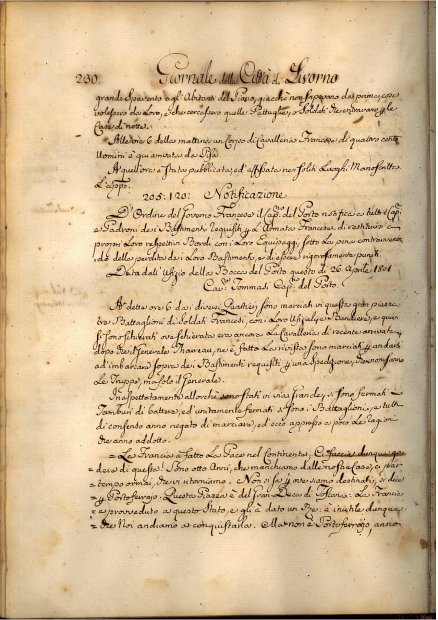 230. Giornale della Città di Livorno
grande Spavento agl'Abitanti del Piano, giacché non sapevano da prima, cosa
volessero da Loro, e che cercassero quelle Pattuglie, e Soldati che entravano p. le
Case di notte.
Alle ore 6 della mattina un Corpo di Cavalleria Francese di quattro cento
Uomini è qui arrivata da Pisa
A quell'ora è stata pubblicata, ed affissata nei soliti Luoghi Manoscritta
L'appo:
205:120: Notificazione
D'Ordine del Governo Francese il Cap. del Porto notifica a tutti i Cap.
e Padroni dei Bastimenti Requisiti p. l'Armata Francese di restituirsi a
propri Loro respettivi Bordi con i Loro Equipaggi, sotto la pena contravvenendo
della perdita dei Loro Bastimenti, e di essere rigorosamente puniti.
Data dall'Ufizio della Bocca del Porto questo dì 26 Aprile 1801
Cav. Tommasi Cap. del Porto.
A dette ore 6 da diversi Quartieri sono marciati in questa gran piazza
tre Battaglioni di Soldati Francesi, con i Loro Ufiziali, e Bandiere, e quivi
si sono schierati ove schierata era ancora La Cavalleria di recente arrivata
dopo che il Generale Tharreau, ne è fatto La rivista sono marciati p. andare
ad imbarcarsi sopra dei Bastimenti requisiti p. una Spedizione, che non sanno
Le Truppe, ma solo il Generale.
Inaspettatamente allorché sono stati in via Grande, si sono fermati i
Tamburi di battere, ed unitamente fermati si sono i Battaglioni, e tutti
di consenso anno negato di marciare, ed ecco appresso a poco Le ragioni
che anno addotto.
= La Francia à fatto La Pace nel Continente, Ci faccia dunque go=
= dere di questa! Sono otto Anni, che manchiamo dalle nostre Case, e sta
= tempo ormai, che vi ritorniamo. Non si sà p. ove siamo destinati, si dice
= p. Porto ferrajo. Questa Piazza è del Gran Duca di Toscana. La Francia
= à provveduto a questo Stato, e gli à dato un Rè: è inutile dunque
= che Noi andiamo a conquistarla. Ma non è Porto ferrajo, anno